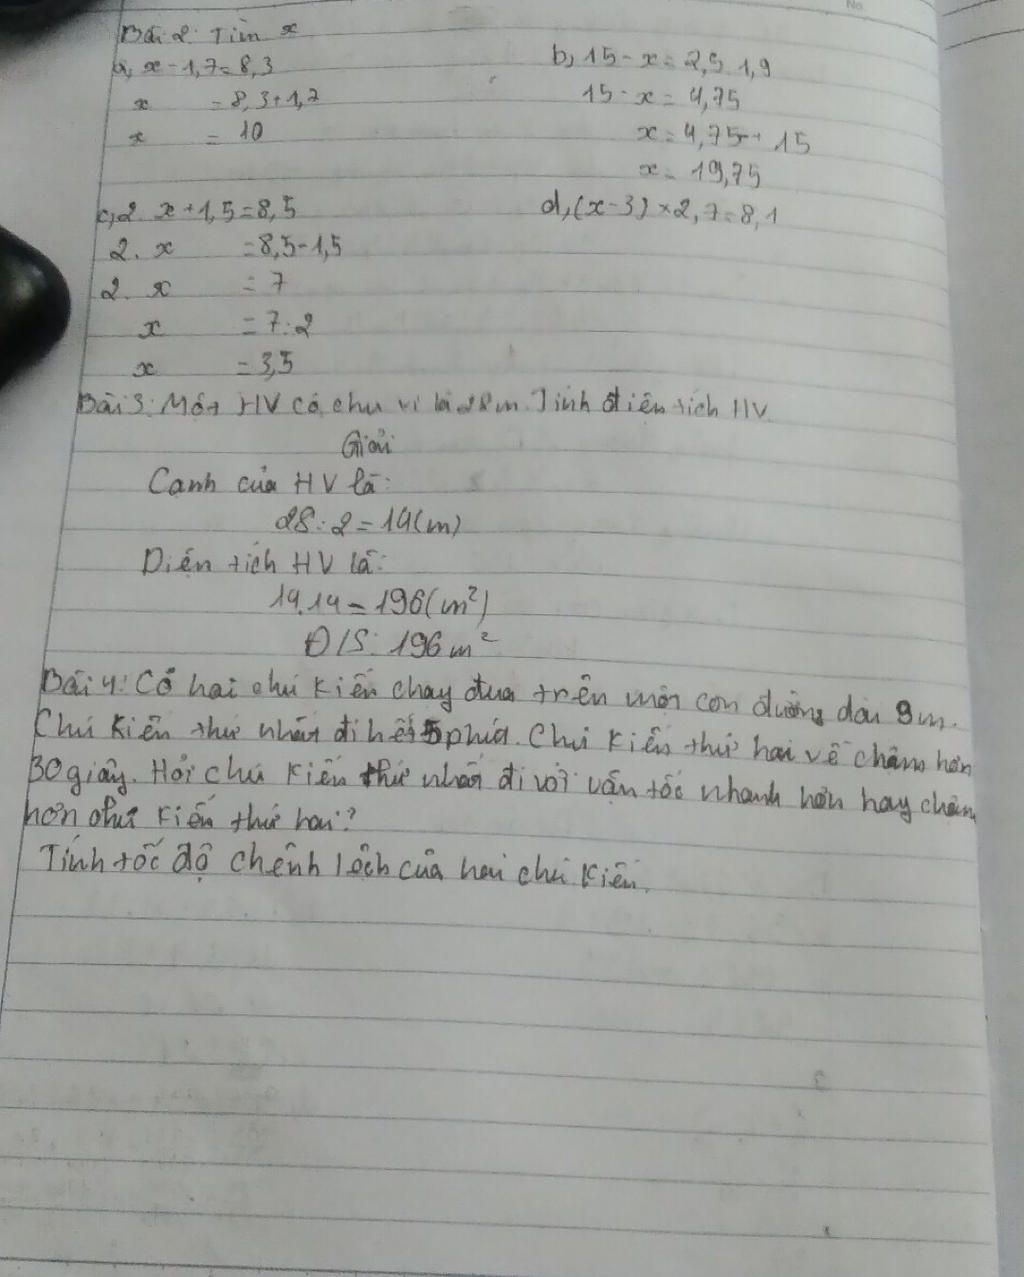 Bài 2: Tìm x
a, x - 1,7 = 8,3
x = 8,3 + 1,7
x = 10
b, 15 - x = 2,5. 1,9
15 - x = 4,75
x = 4,75 + 15
x = 19,75
c, 2. x + 1,5 = 8,5
2. x = 8,5 - 1,5
2. x = 7
x = 7:2
x = 3,5
d, (x - 3) × 2,7 = 8,1
Bài 3: Một HV có chu vi là 28m. Tính điên tích HV.
Giải
Canh của HV là:
28 : 2 = 14(m)
Diện tích HV là:
14.14 = 196(m²)
Đ/S: 196m²
Bài 4: Có hai chú kiến chạy đua trên một con đường dài 9m.
Chú kiến thứ nhất đi hết 5 phút. Chú kiến thứ hai về chậm hơn
30 giây. Hỏi chú kiến thứ nhất đi với vận tốc nhanh hơn hay chậm
hơn chú kiến thứ hai?
Tính tốc độ chênh lệch của hai chú kiến.